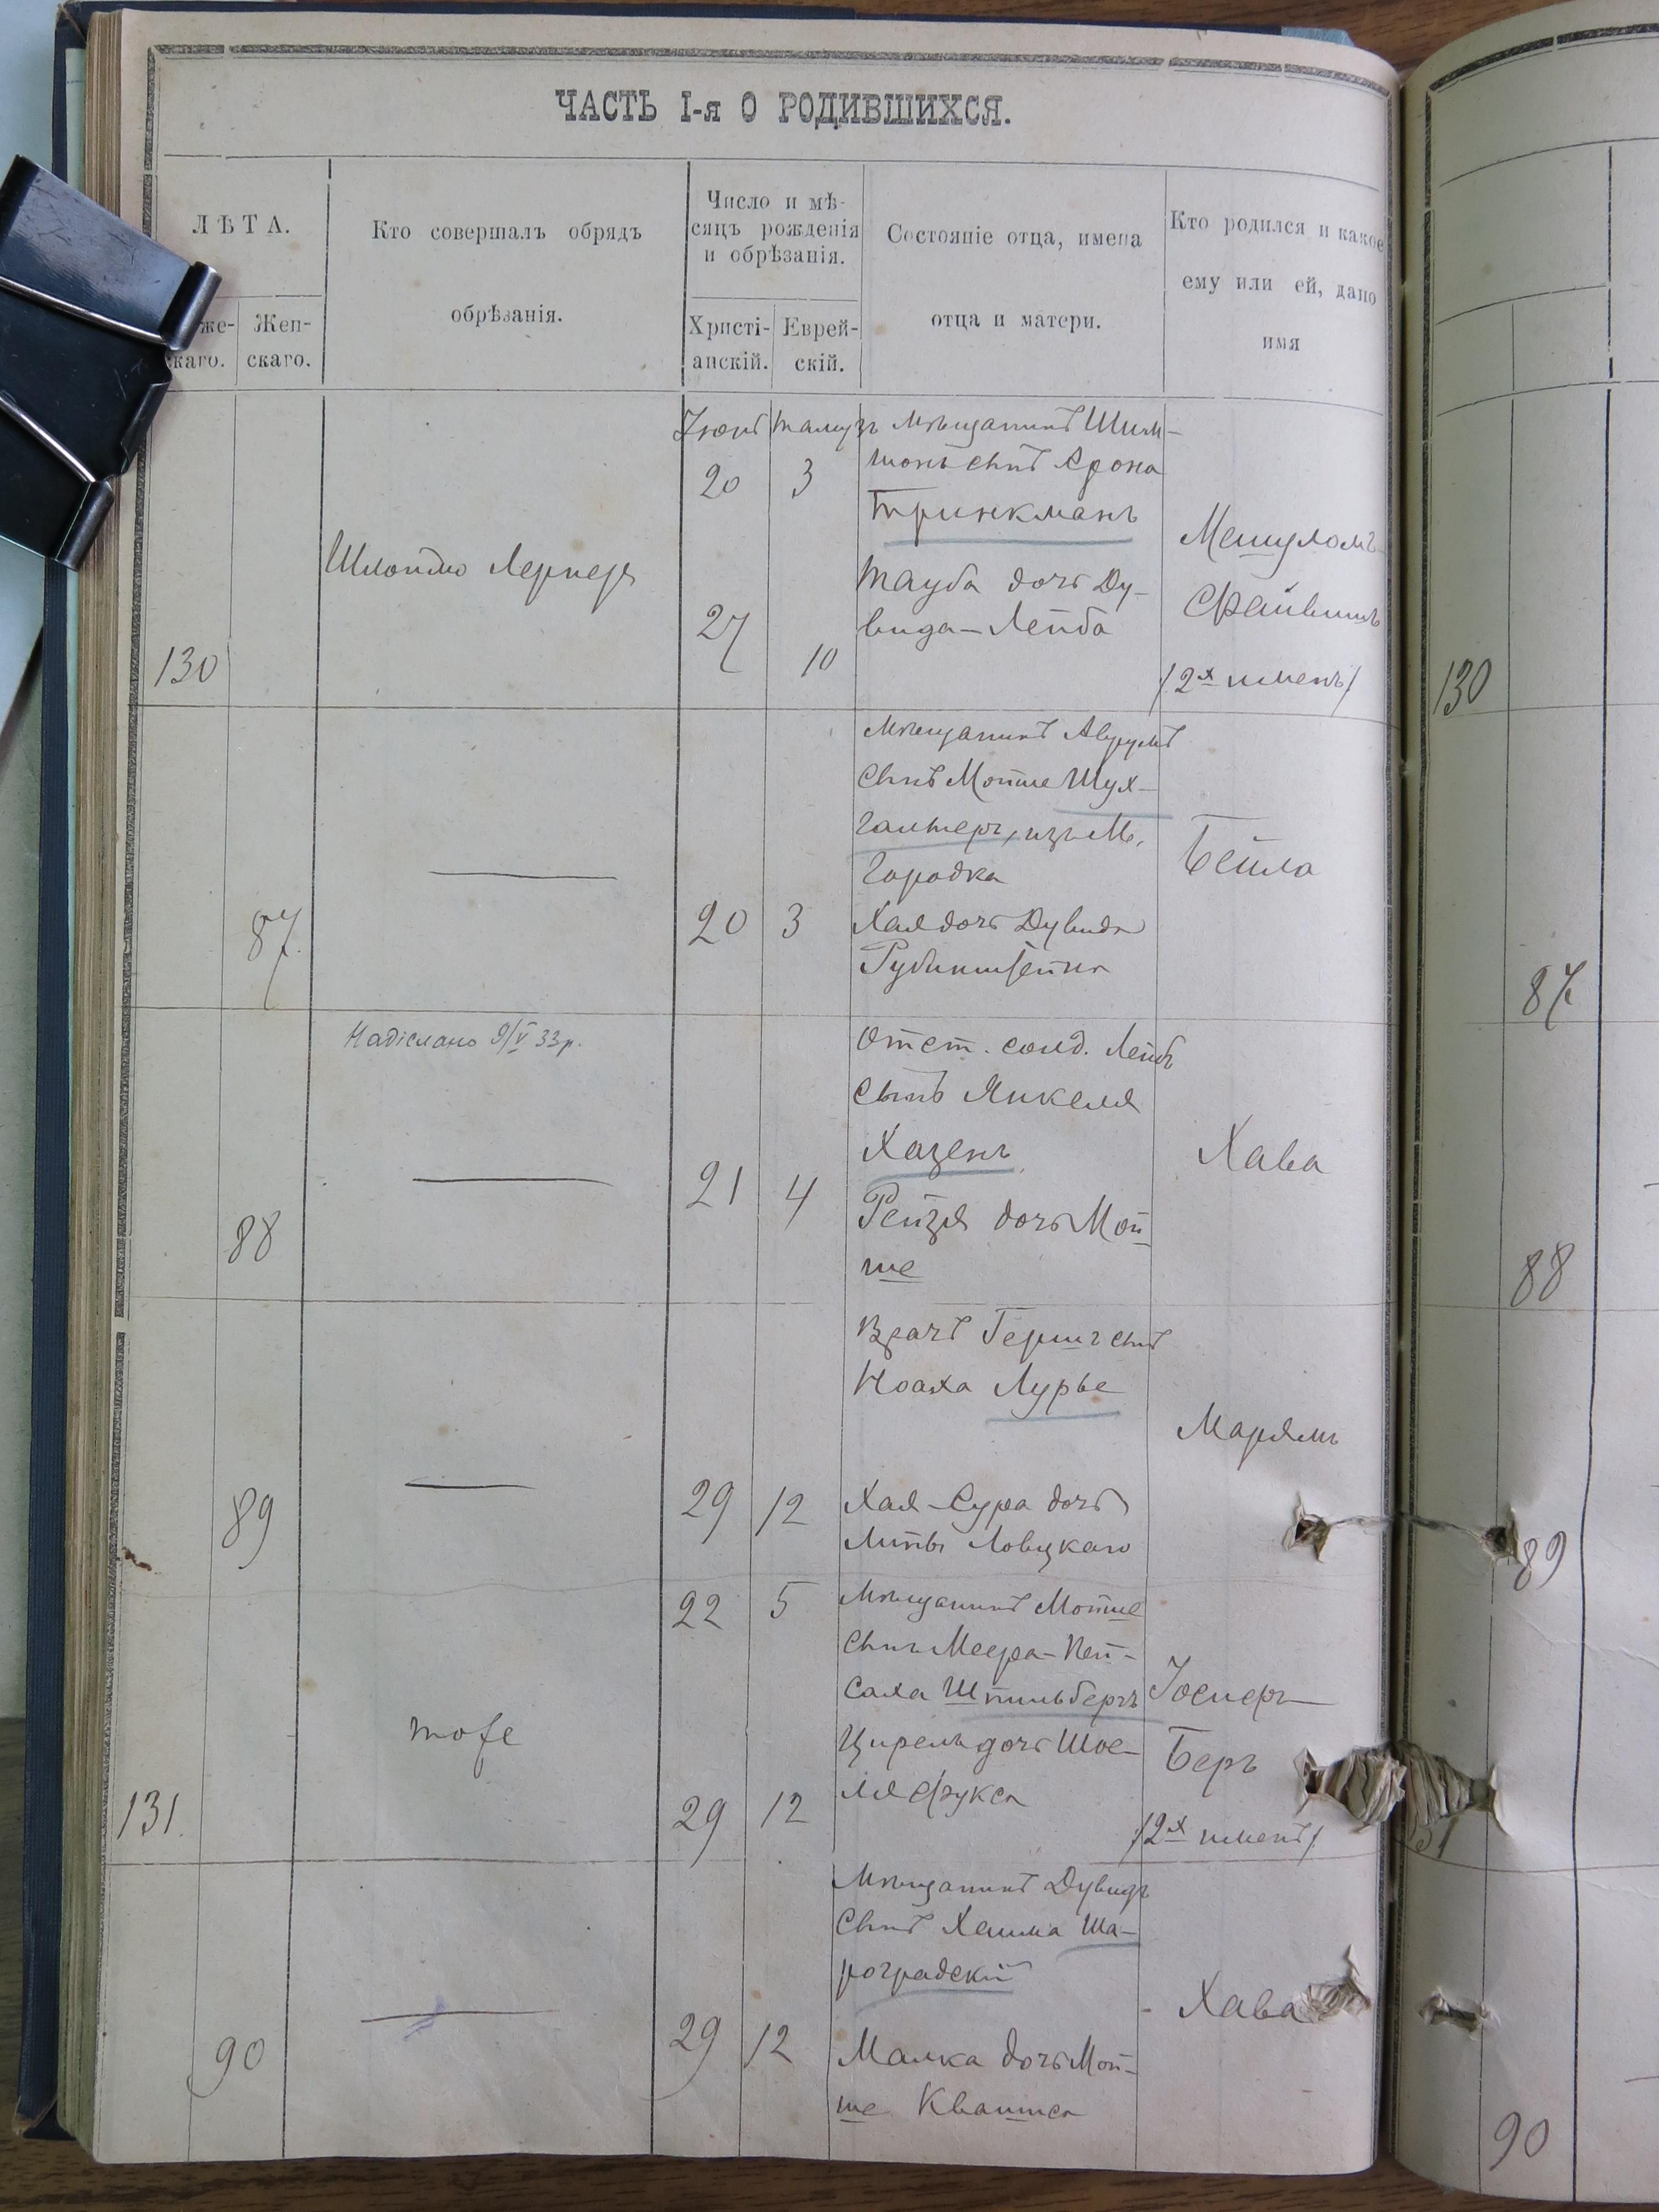 ЧАСТЬ I-я О РОДИВШИХСЯ.
ЛѢТА.
же-
каго.
Жен-
скаго.
Кто совершалъ обрядъ
обрѣзанія.
Число и мѣ-
сяцъ рожденія
и обрѣзанія.
Христі-
анскій.
Еврей-
скій.
Состояніе отца, имена
отца и матери.
Кто родился и какое
ему или ей, дано
имя
130
Шлоймо Лернеръ
Іюнь
20
27
тамузъ
3
10
Мѣщанинъ Шим-
шонъ сынъ Арона
Тринкманъ
Тауба дочь Ду-
вида-Лейба
Мешуломъ-
Файвишъ
/2х именъ/
130
87
20
3
Мѣщанинъ Аврумъ
сынъ Мойше Шух-
гальтеръ, изъ М.
Городка
Хая дочь Дувида
Рубинштейна
Бейла
87
Надіслано 9/V 33р.
88
21
4
Отст. солд. Лейбъ
сынъ Янкеля
Хазенъ
Рейзя дочь Мой-
ше
Хава
88
89
29
12
Врачъ Гершъ сынъ
Ноаха Лурье
Хая-Сура дочь
Липы Ловицкаго
Марьямъ
89
131.
тоже
22
5
29
12
Мѣщанинъ Мойше
сынъ Меера-Пей-
саха Шпильбергъ
Цирель дочь Шое-
ля Фукса
Іосперъ-
Беръ
/2х именъ/
131
90
29
12
Мѣщанинъ Дувидъ
сынъ Хаима Ша-
роградскій
Малка дочь Мой-
ше Кваша
Хава
90